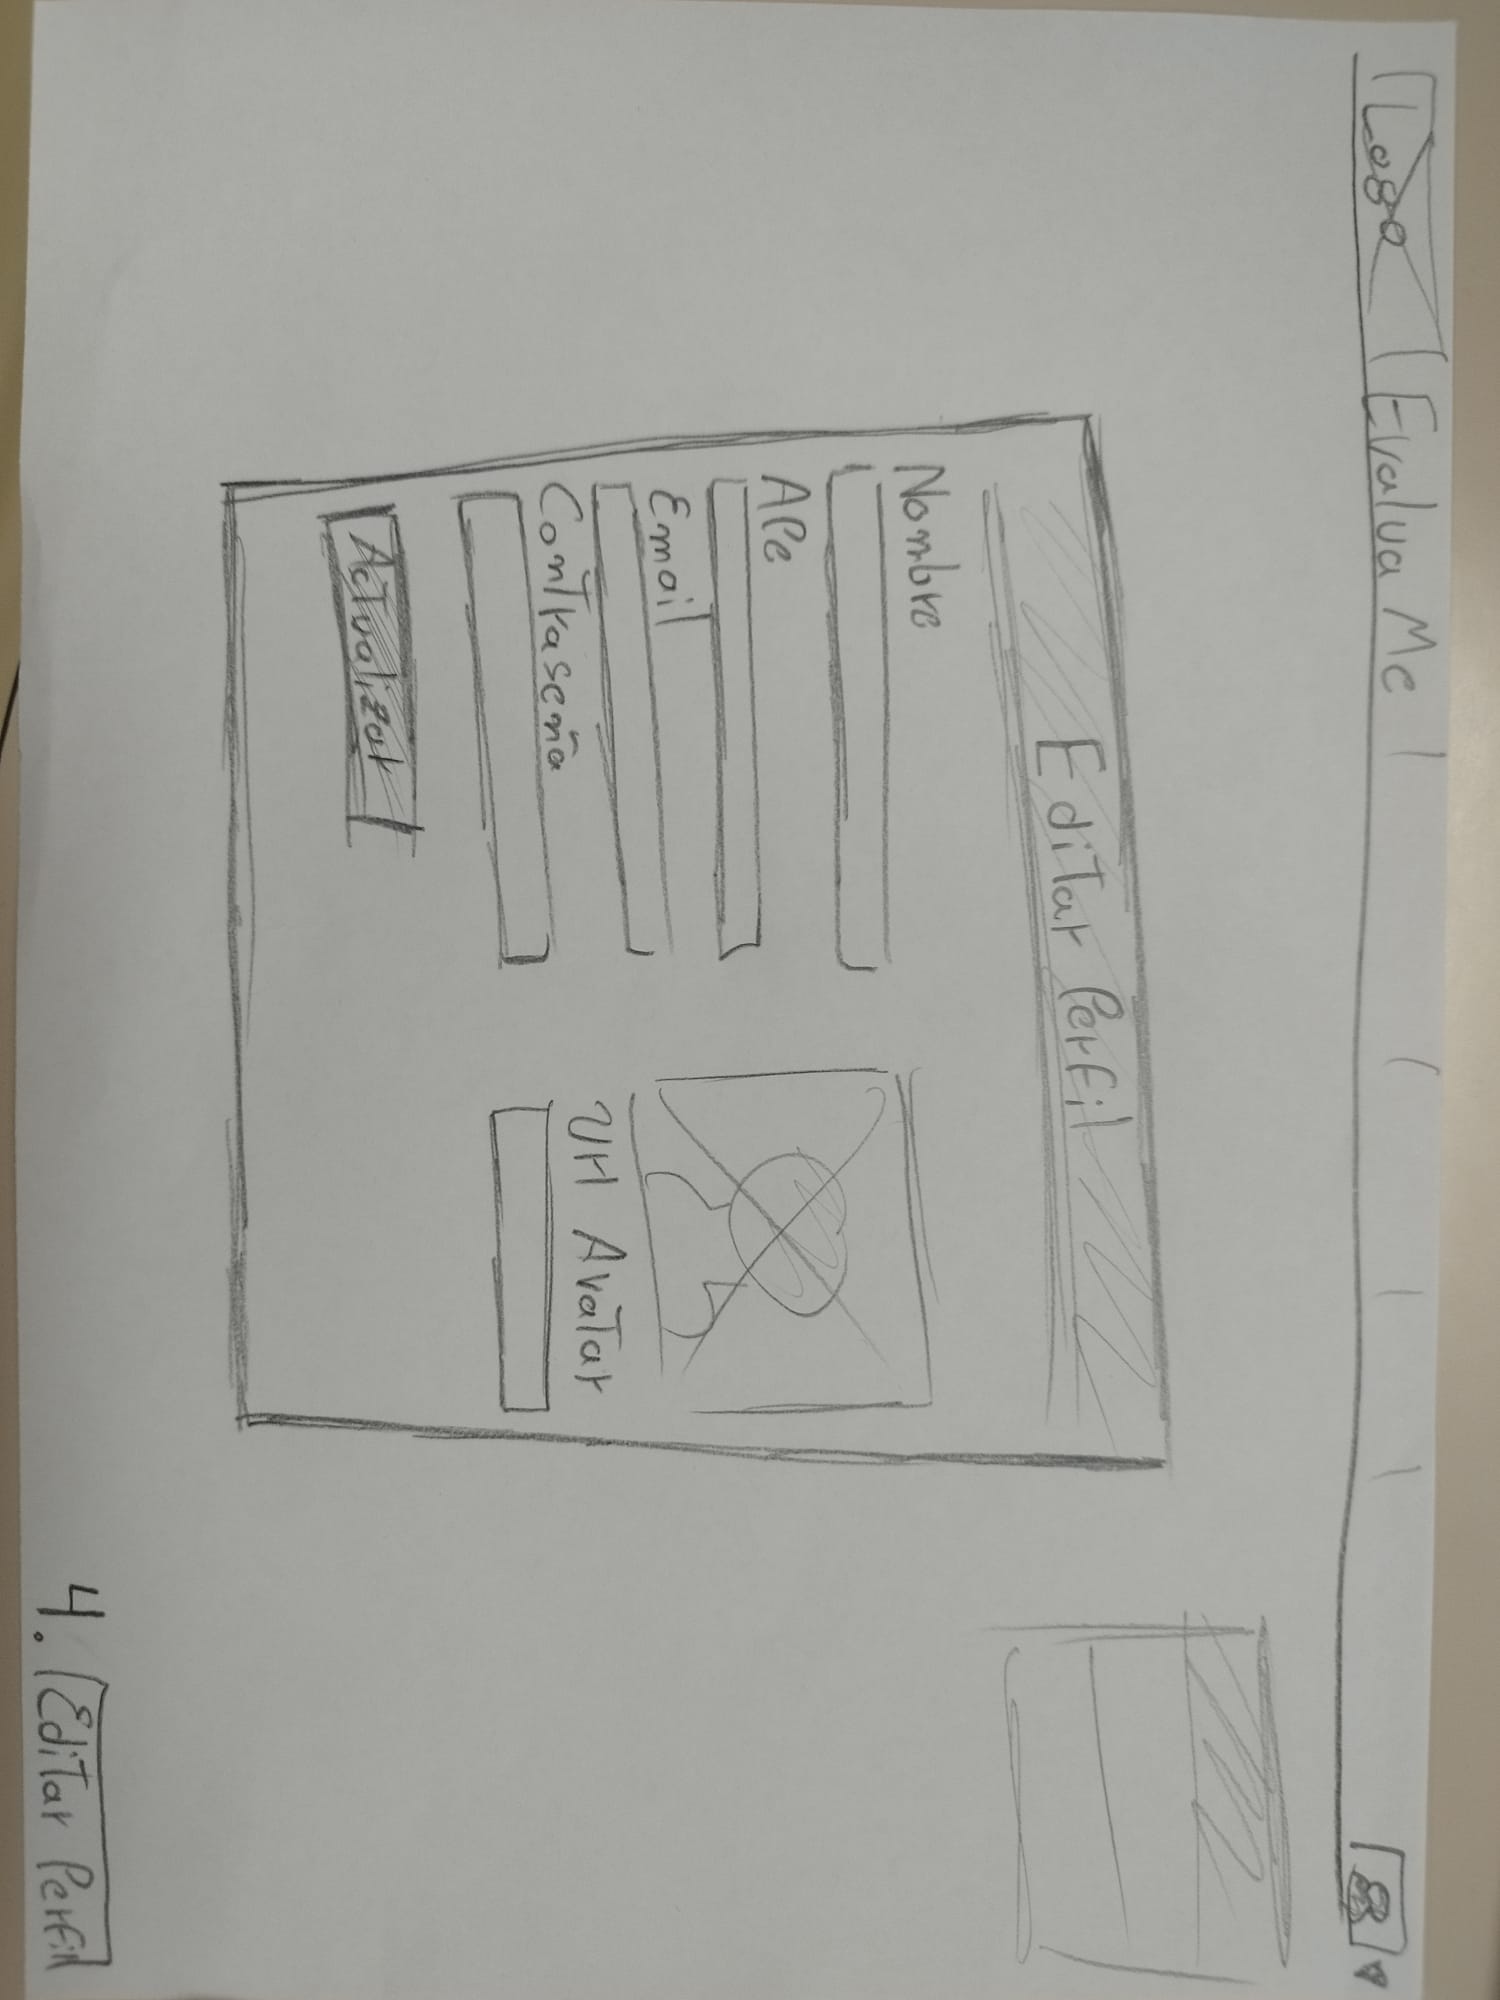 Logo Evalua Me
Editar Perfil
Nombre
APe
Email
Contraseña
Url Avatar
Actualizar
4. Editar Perfil